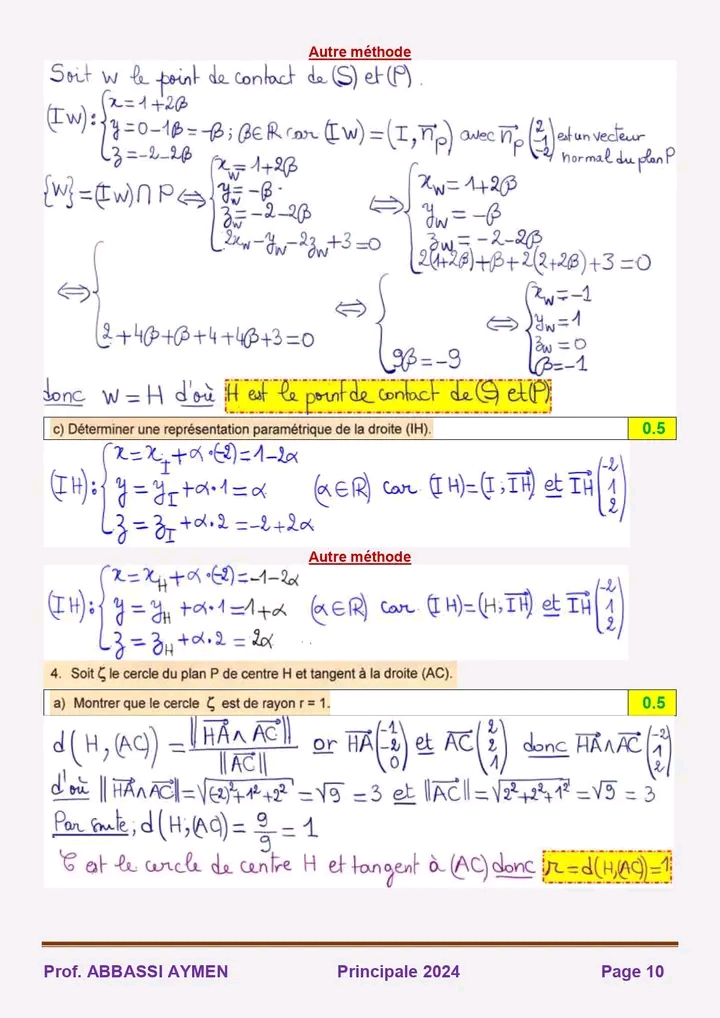 Autre méthode
Soit w le point de contact de (S) et (P).
(Iw): { x = 1+2β
y = 0-1β = -β ; β∈ℝ car (Iw) = (I, n⃗p) avec n⃗p (2 -1 -2) est un vecteur normal du plan P
z = -2-2β
{w} = (Iw) ∩ P ⇔ { xw = 1+2β
yw = -β
zw = -2-2β
2xw - yw - 2zw + 3 = 0
⇔ { xw = 1+2β
yw = -β
zw = -2-2β
2(1+2β)+β+2(2+2β)+3 = 0
⇔ { 2+4β+β+4+4β+3 = 0
⇔ { 9β = -9
⇔ { xw = -1
yw = 1
zw = 0
β = -1
donc w = H d'où H est le point de contact de (S) et (P)
c) Déterminer une représentation paramétrique de la droite (IH). 0.5
(IH): { x = xI + α·(-2) = 1-2α
y = yI + α·1 = α (α∈ℝ) car (IH) = (I; IH⃗) et IH⃗ (-2 1 2)
z = zI + α·2 = -2+2α
Autre méthode
(IH): { x = xH + α·(-2) = -1-2α
y = yH + α·1 = 1+α (α∈ℝ) car (IH) = (H; IH⃗) et IH⃗ (-2 1 2)
z = zH + α·2 = 2α
4. Soit ζ le cercle du plan P de centre H et tangent à la droite (AC).
a) Montrer que le cercle ζ est de rayon r = 1. 0.5
d(H,(AC)) = ||HA⃗ ∧ AC⃗|| / ||AC⃗|| or HA⃗ (-1 -2 0) et AC⃗ (2 2 1) donc HA⃗ ∧ AC⃗ (-2 1 2)
d'où ||HA⃗ ∧ AC⃗|| = √((-2)²+1²+2²) = √9 = 3 et ||AC⃗|| = √(2²+2²+1²) = √9 = 3
Par suite; d(H;(AC)) = 9/9 = 1
ζ est le cercle de centre H et tangent à (AC) donc r = d(H,(AC)) = 1
Prof. ABBASSI AYMEN Principale 2024 Page 10